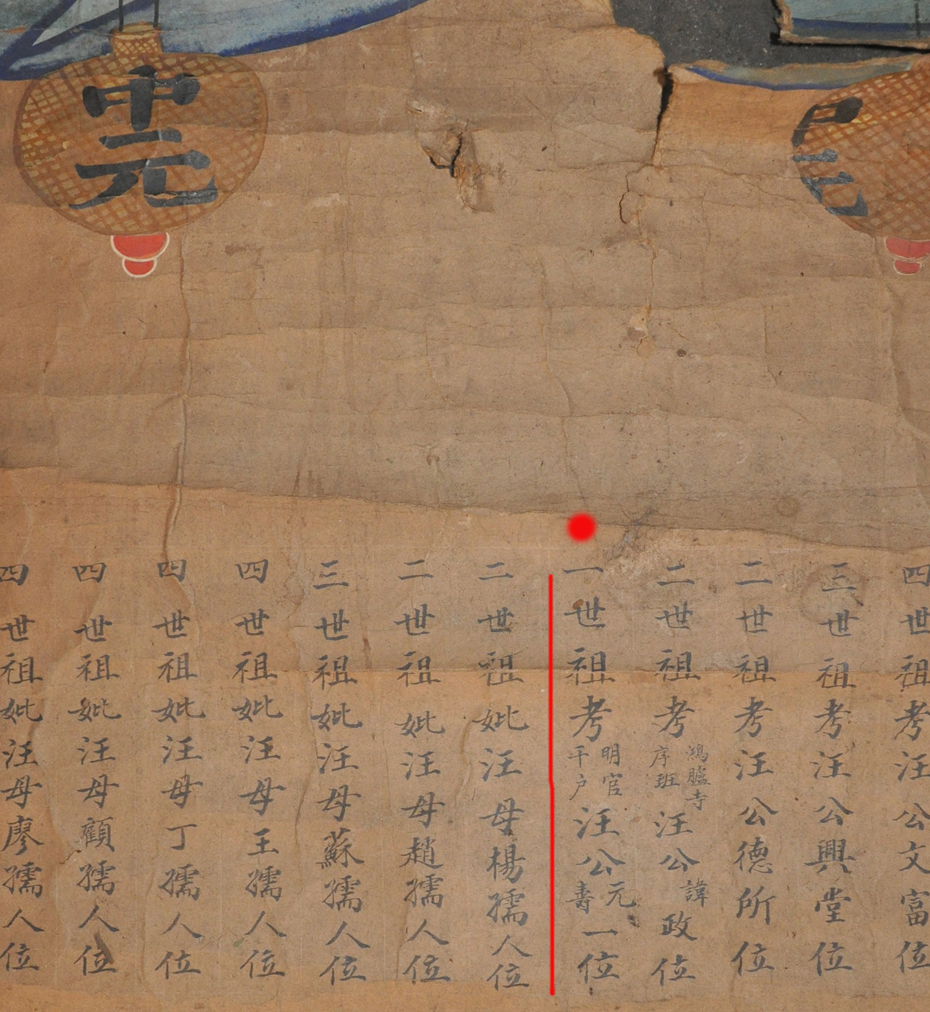 元
中元
四世祖考汪公文富位
三世祖考汪公興堂位
二世祖考汪公德所位
二世祖考鴻臚寺序班汪公諱政位
一世祖考明官千户汪公元壽一位
二世祖妣汪母楊孺人位
二世祖妣汪母趙孺人位
三世祖妣汪母蘇孺人位
四世祖妣汪母王孺人位
四世祖妣汪母丁孺人位
四世祖妣汪母顧孺人位
四世祖妣汪母廖孺人位